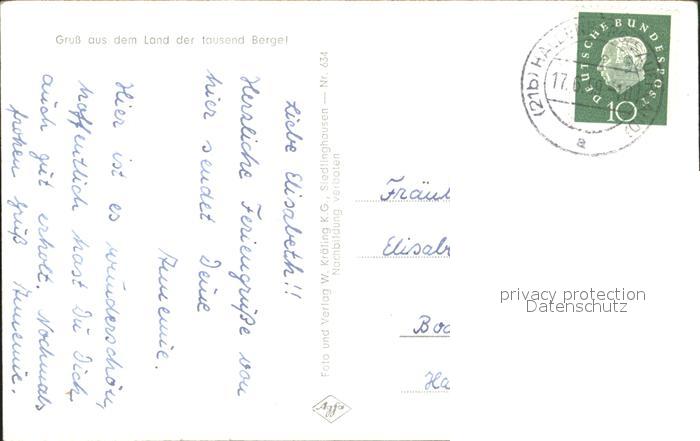 Gruß aus dem Land der tausend Berge!
Liebe Elisabeth!!
Herzliche Feriengrüße von
hier sendet Deine
Annemie.
Hier ist es wunderschön,
hoffentlich hast Du Dich
auch gut erholt. Nochmals
frohen Gruß Annemie.
Foto und Verlag W. Kräling K.G., Siedlinghausen — Nr. 634
Nachbildung verboten
DEUTSCHE BUNDESPOST
10
(21b) HALLEN
17.6
a
Fräul
Elisab
Boc
Ha
privacy protection
Datenschutz